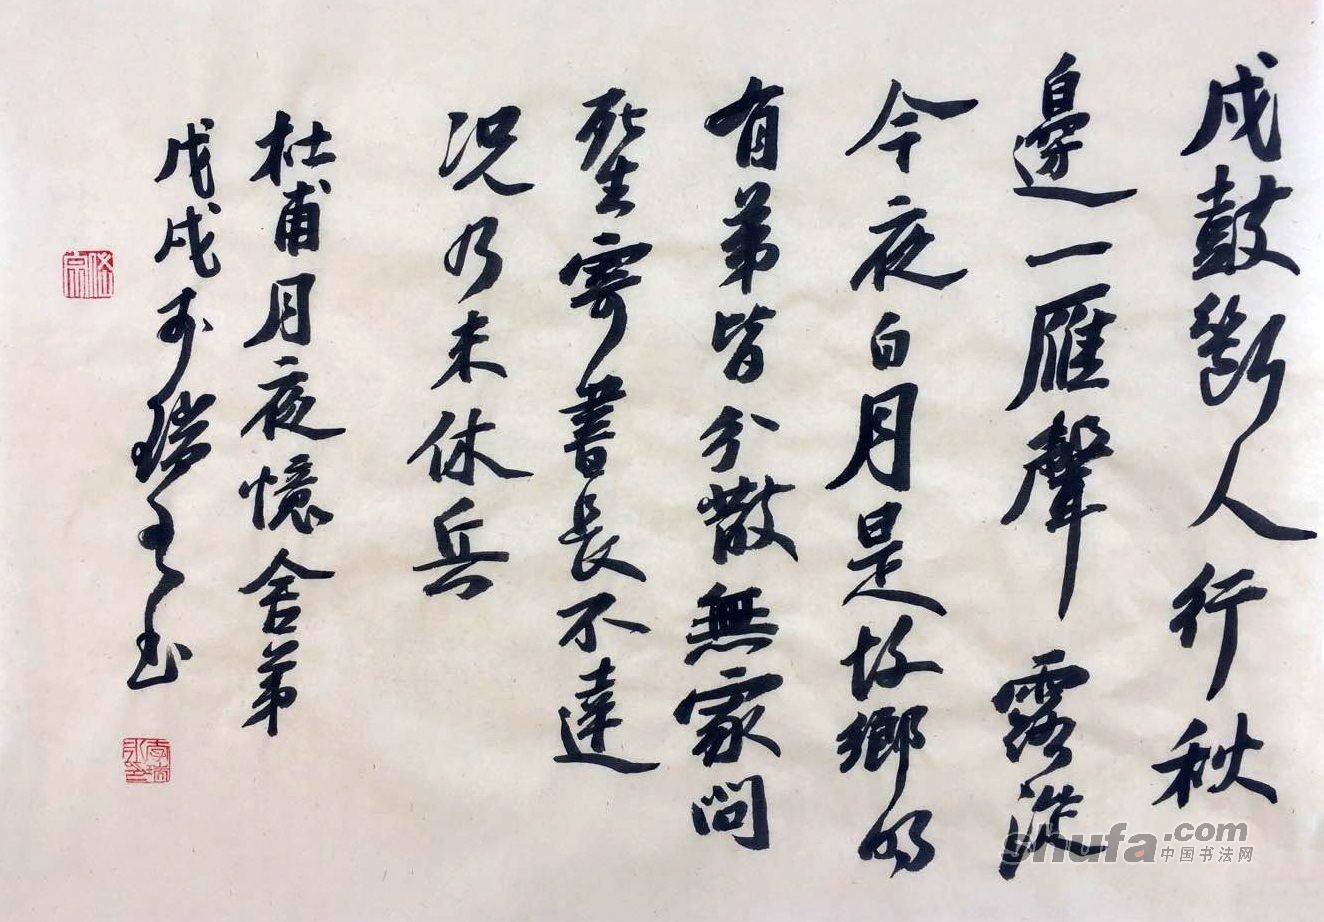 戍鼓斷人行秋
邊一雁聲露從
今夜白月是故鄉明
有弟皆分散無家問
死生寄書長不達
況乃未休兵
杜甫月夜憶舍弟
戊戌瑞书
shufa.com
中国书法网